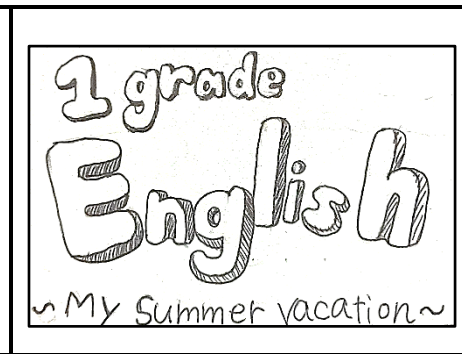 1 grade
English
~My Summer vacation~